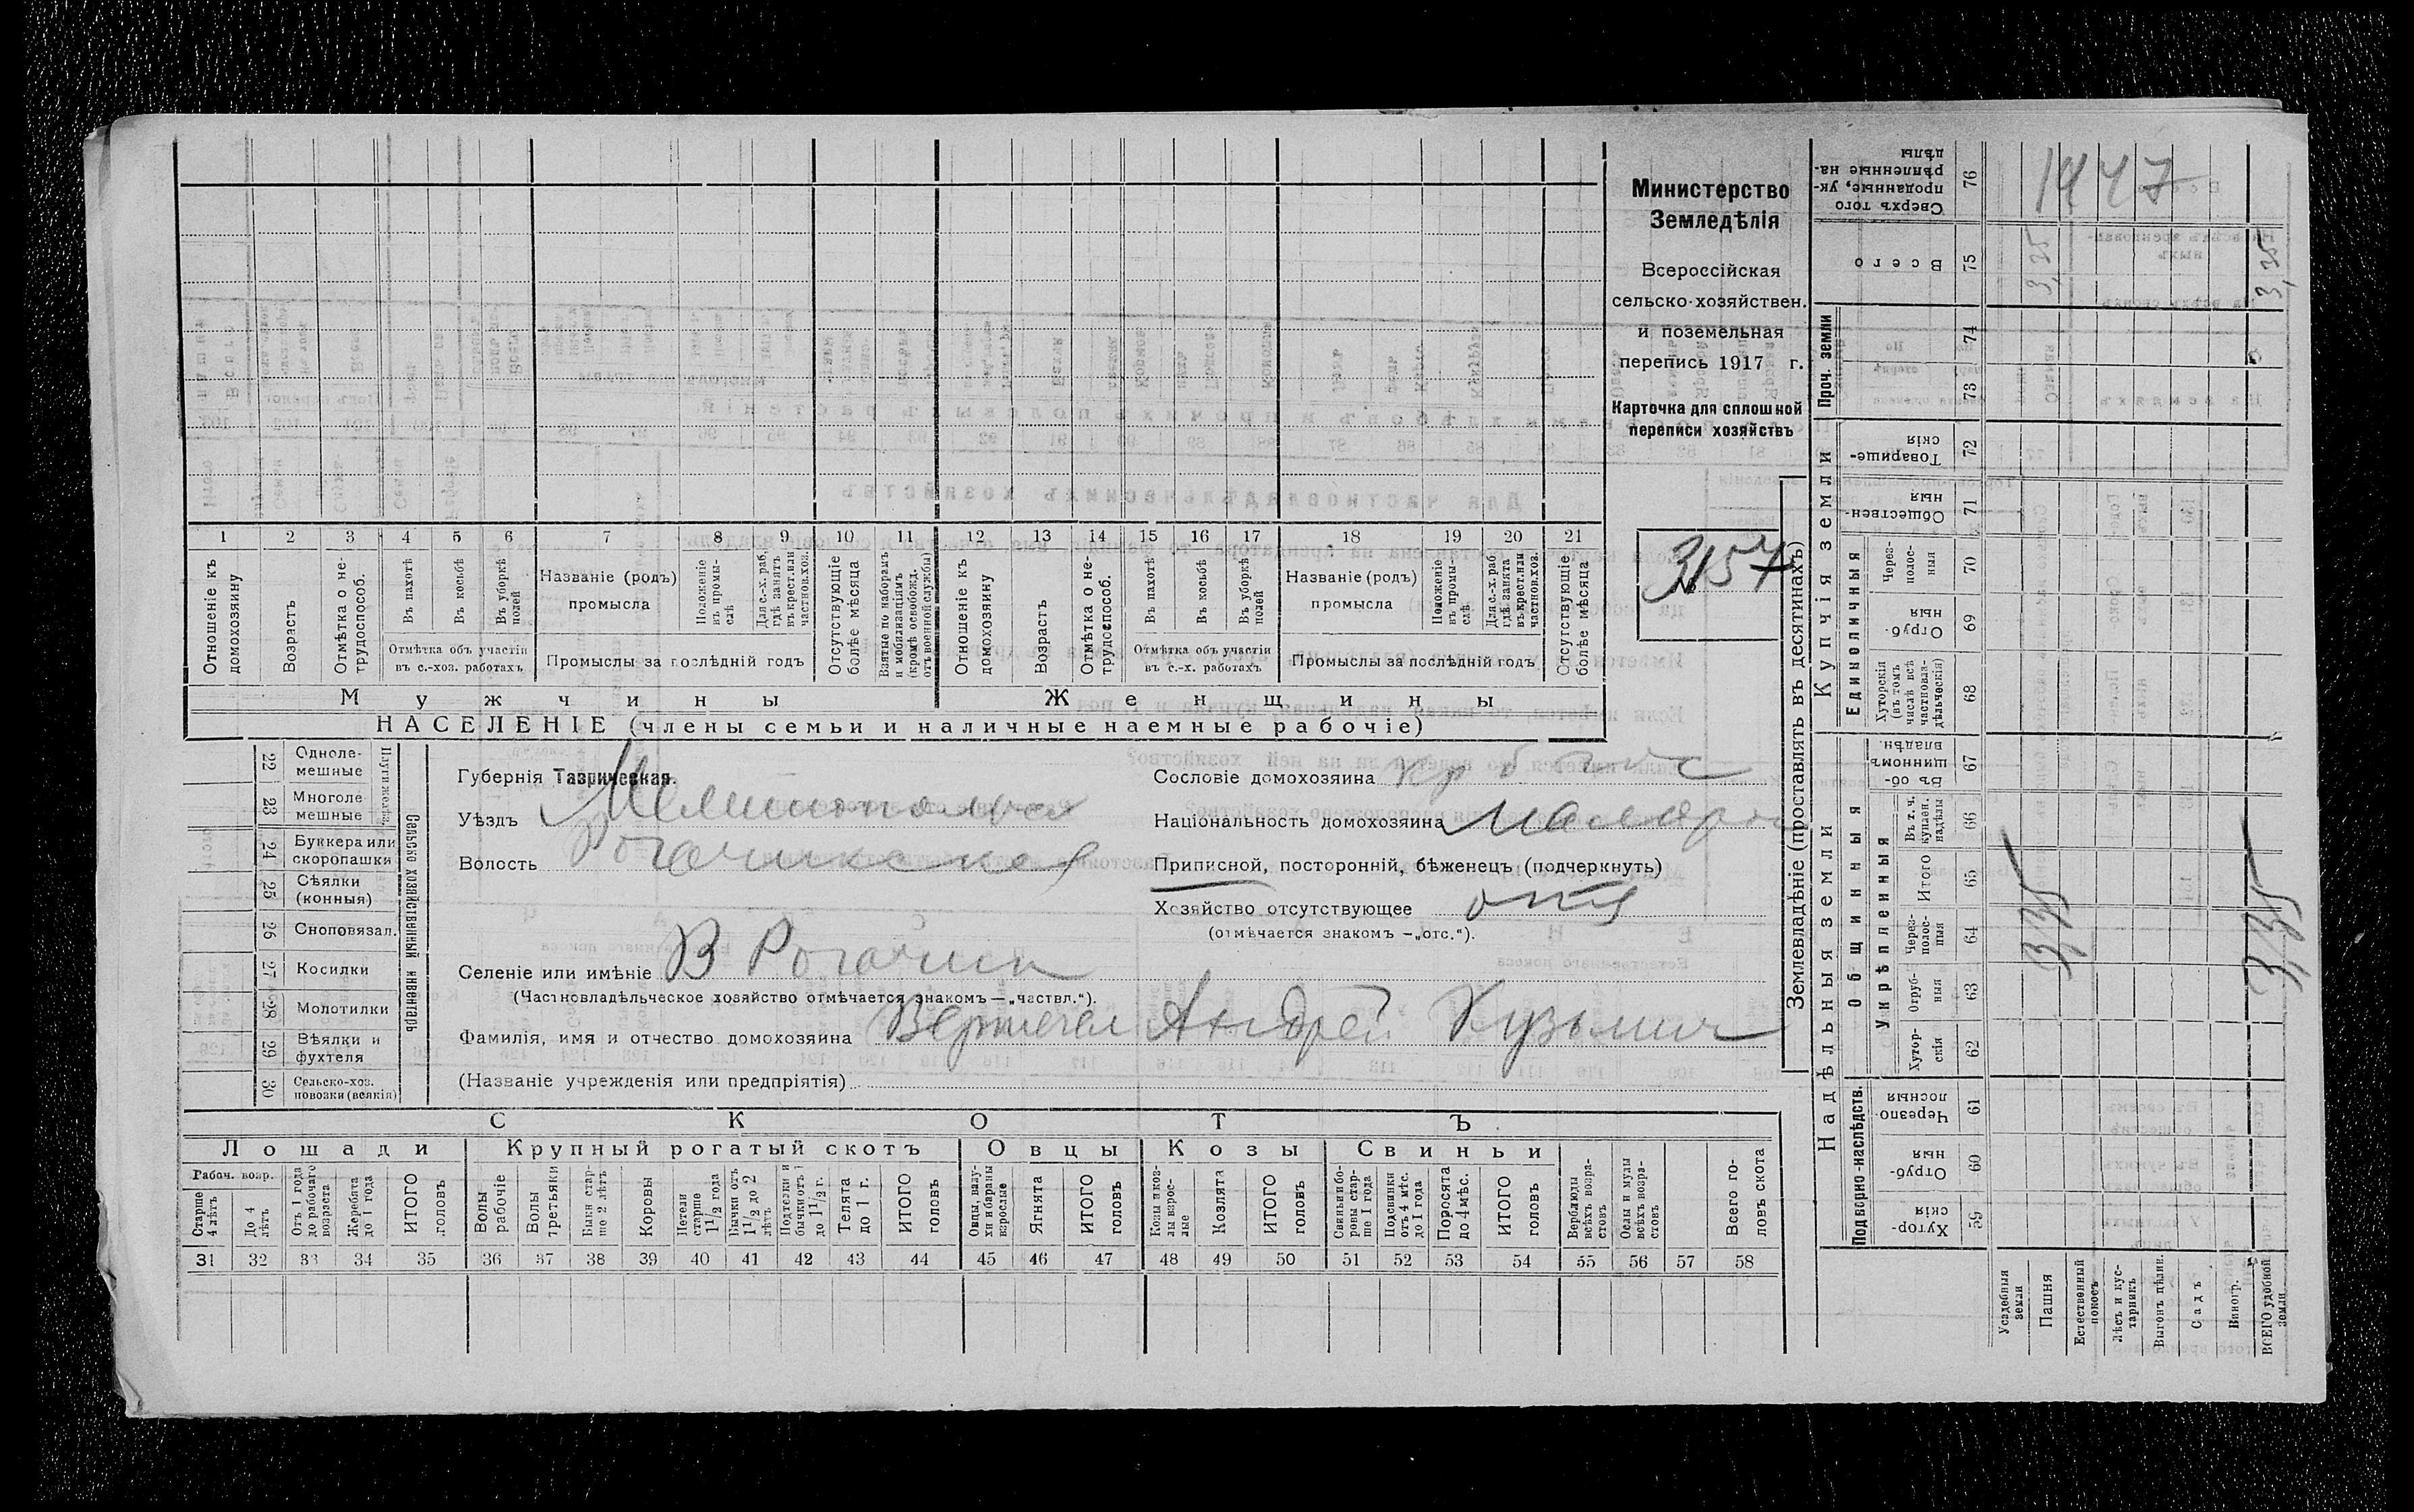 Министерство
Земледѣлія
Всероссійская
сельско-хозяйствен.
и поземельная
перепись 1917 г.
Карточка для сплошной
переписи хозяйствъ
3157
1 2 3 4 5 6 7 8 9 10 11 12 13 14 15 16 17 18 19 20 21
Отношеніе къ домохозяину
Возрастъ
Отмѣтка о не-трудоспособ.
Въ пахотѣ
Въ косьбѣ
Въ уборкѣ полей
Отмѣтка объ участіи
въ с.-хоз. работахъ
Названіе (родъ)
промысла
Положеніе въ промы-слѣ
Для с.-х. раб. гдѣ занятъ въ крест. или частнов.хоз.
Промыслы за послѣдній годъ
Отсутствующіе болѣе мѣсяца
Взятые по наборамъ и мобилизаціямъ (кромѣ освобожд. отъ военной службы)
Отношеніе къ домохозяину
Возрастъ
Отмѣтка о не-трудоспособ.
Въ пахотѣ
Въ косьбѣ
Въ уборкѣ полей
Отмѣтка объ участіи
въ с.-х. работахъ
Названіе (родъ)
промысла
Положеніе въ промы-слѣ.
Для с.-х. раб. гдѣ занята въ крест. или частнов.хоз.
Промыслы за послѣдній годъ
Отсутствующіе болѣе мѣсяца
Мужчины
Женщины
НАСЕЛЕНІЕ (члены семьи и наличные наемные рабочіе)
22 Одноле-мешные
23 Многоле мешные
24 Буккера или скоропашки
25 Сѣялки (конныя)
26 Сноповязал.
27 Косилки
28 Молотилки
29 Вѣялки и фухтеля
30 Сельско-хоз. повозки (всякія)
Сельско хозяйственный инвентарь
Губернія Таврическая.
Уѣздъ Мелитопольск
Волость Рогачикская
Селеніе или имѣніе В Рогачик
(Частновладѣльческое хозяйство отмѣчается знакомъ — „частвл.“).
Фамилія, имя и отчество домохозяина Андрей Кузьмич
(Названіе учрежденія или предпріятія)
Сословіе домохозяина
Національность домохозяина малорос
Приписной, посторонній, бѣженецъ (подчеркнуть)
Хозяйство отсутствующее
(отмѣчается знакомъ —„отс.“).
СКОТЪ
Лошади
Крупный рогатый скотъ
Овцы
Козы
Свиньи
Рабоч. возр.
Старше 4 лѣтъ
До 4 лѣтъ
Отъ 1 года до рабочаго возраста
Жеребята до 1 года
ИТОГО головъ
Волы рабочіе
Волы третьяки
Быки стар-ше 2 лѣтъ
Коровы
Нетели старше 1 1/2 года
Бычки отъ 1 1/2 до 2 лѣтъ
Подтелки и бычки отъ 1 до 1 1/2 г.
Телята до 1 г.
ИТОГО головъ
Овцы, валу-хи и бараны взрослые
Ягнята
ИТОГО головъ
Козы и коз-лы взрос-лые
Козлята
ИТОГО головъ
Свиньи и бо-ровы стар-ше 1 года
Подсвинки отъ 4 мѣс. до 1 года
Поросята до 4 мѣс.
ИТОГО головъ
Верблюды всѣхъ возра-стовъ
Ослы и мулы всѣхъ возра-стовъ
Всего го-ловъ скота
31 32 33 34 35 36 37 38 39 40 41 42 43 44 45 46 47 48 49 50 51 52 53 54 55 56 57 58
Землевладѣніе (проставлять въ десятинахъ)
Купчія земли
Надѣльныя земли
Сверхъ того проданные, ук-рѣпленные на-дѣлы 76
1447
Всего 75
3,25
3,25
Проч. земли
74
73
Товарище-скія 72
Обществен-ныя 71
Единоличныя
Через-полос-ныя 70
Отруб-ныя 69
Хуторскія (въ томъ числѣ всѣ частновла-дѣльческія) 68
Общинныя
Въ об-щинномъ владѣн. 67
Укрѣпленныя
Въ т. ч. куплен. надѣлы 66
Итого 65
Через-полос-ныя 64
Отруб-ныя 63
Хутор-скія 62
Подворно-наслѣдств.
Черезпо-лосныя 61
Отруб-ныя 60
Хутор-скія 59
Усадебныя земли
Пашня
Естественный покосъ
Лѣсъ и кус-тарникъ
Выгонъ цѣлин.
Садъ
Виногр.
ВСЕГО удобной земли